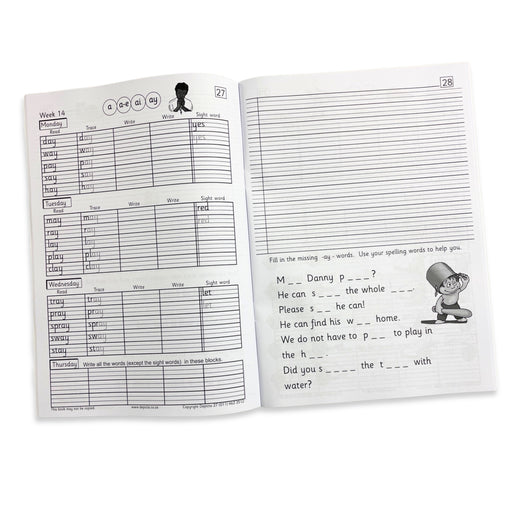 Week 14
a a-e ai ay
27
Monday
Read Trace Write Write Sight word
day day yes
way way yes
pay pay
say say
hay hay
Tuesday
Read Trace Write Write Sight word
may may red
ray ray red
lay lay
play play
clay clay
Wednesday
Read Trace Write Write Sight word
tray tray let
pray pray let
spray spray
sway sway
stay stay
Thursday Write all the words (except the sight words) in these blocks.
This book may not be copied.
28
Fill in the missing -ay - words. Use your spelling words to help you.
M _ _ Danny p _ _ _ ?
He can s _ _ _ the whole _ _ _.
Please s _ _ he can!
He can find his w _ _ home.
We do not have to p _ _ to play in
the h _ _ .
Did you s _ _ _ _ the t _ _ _ with
water?